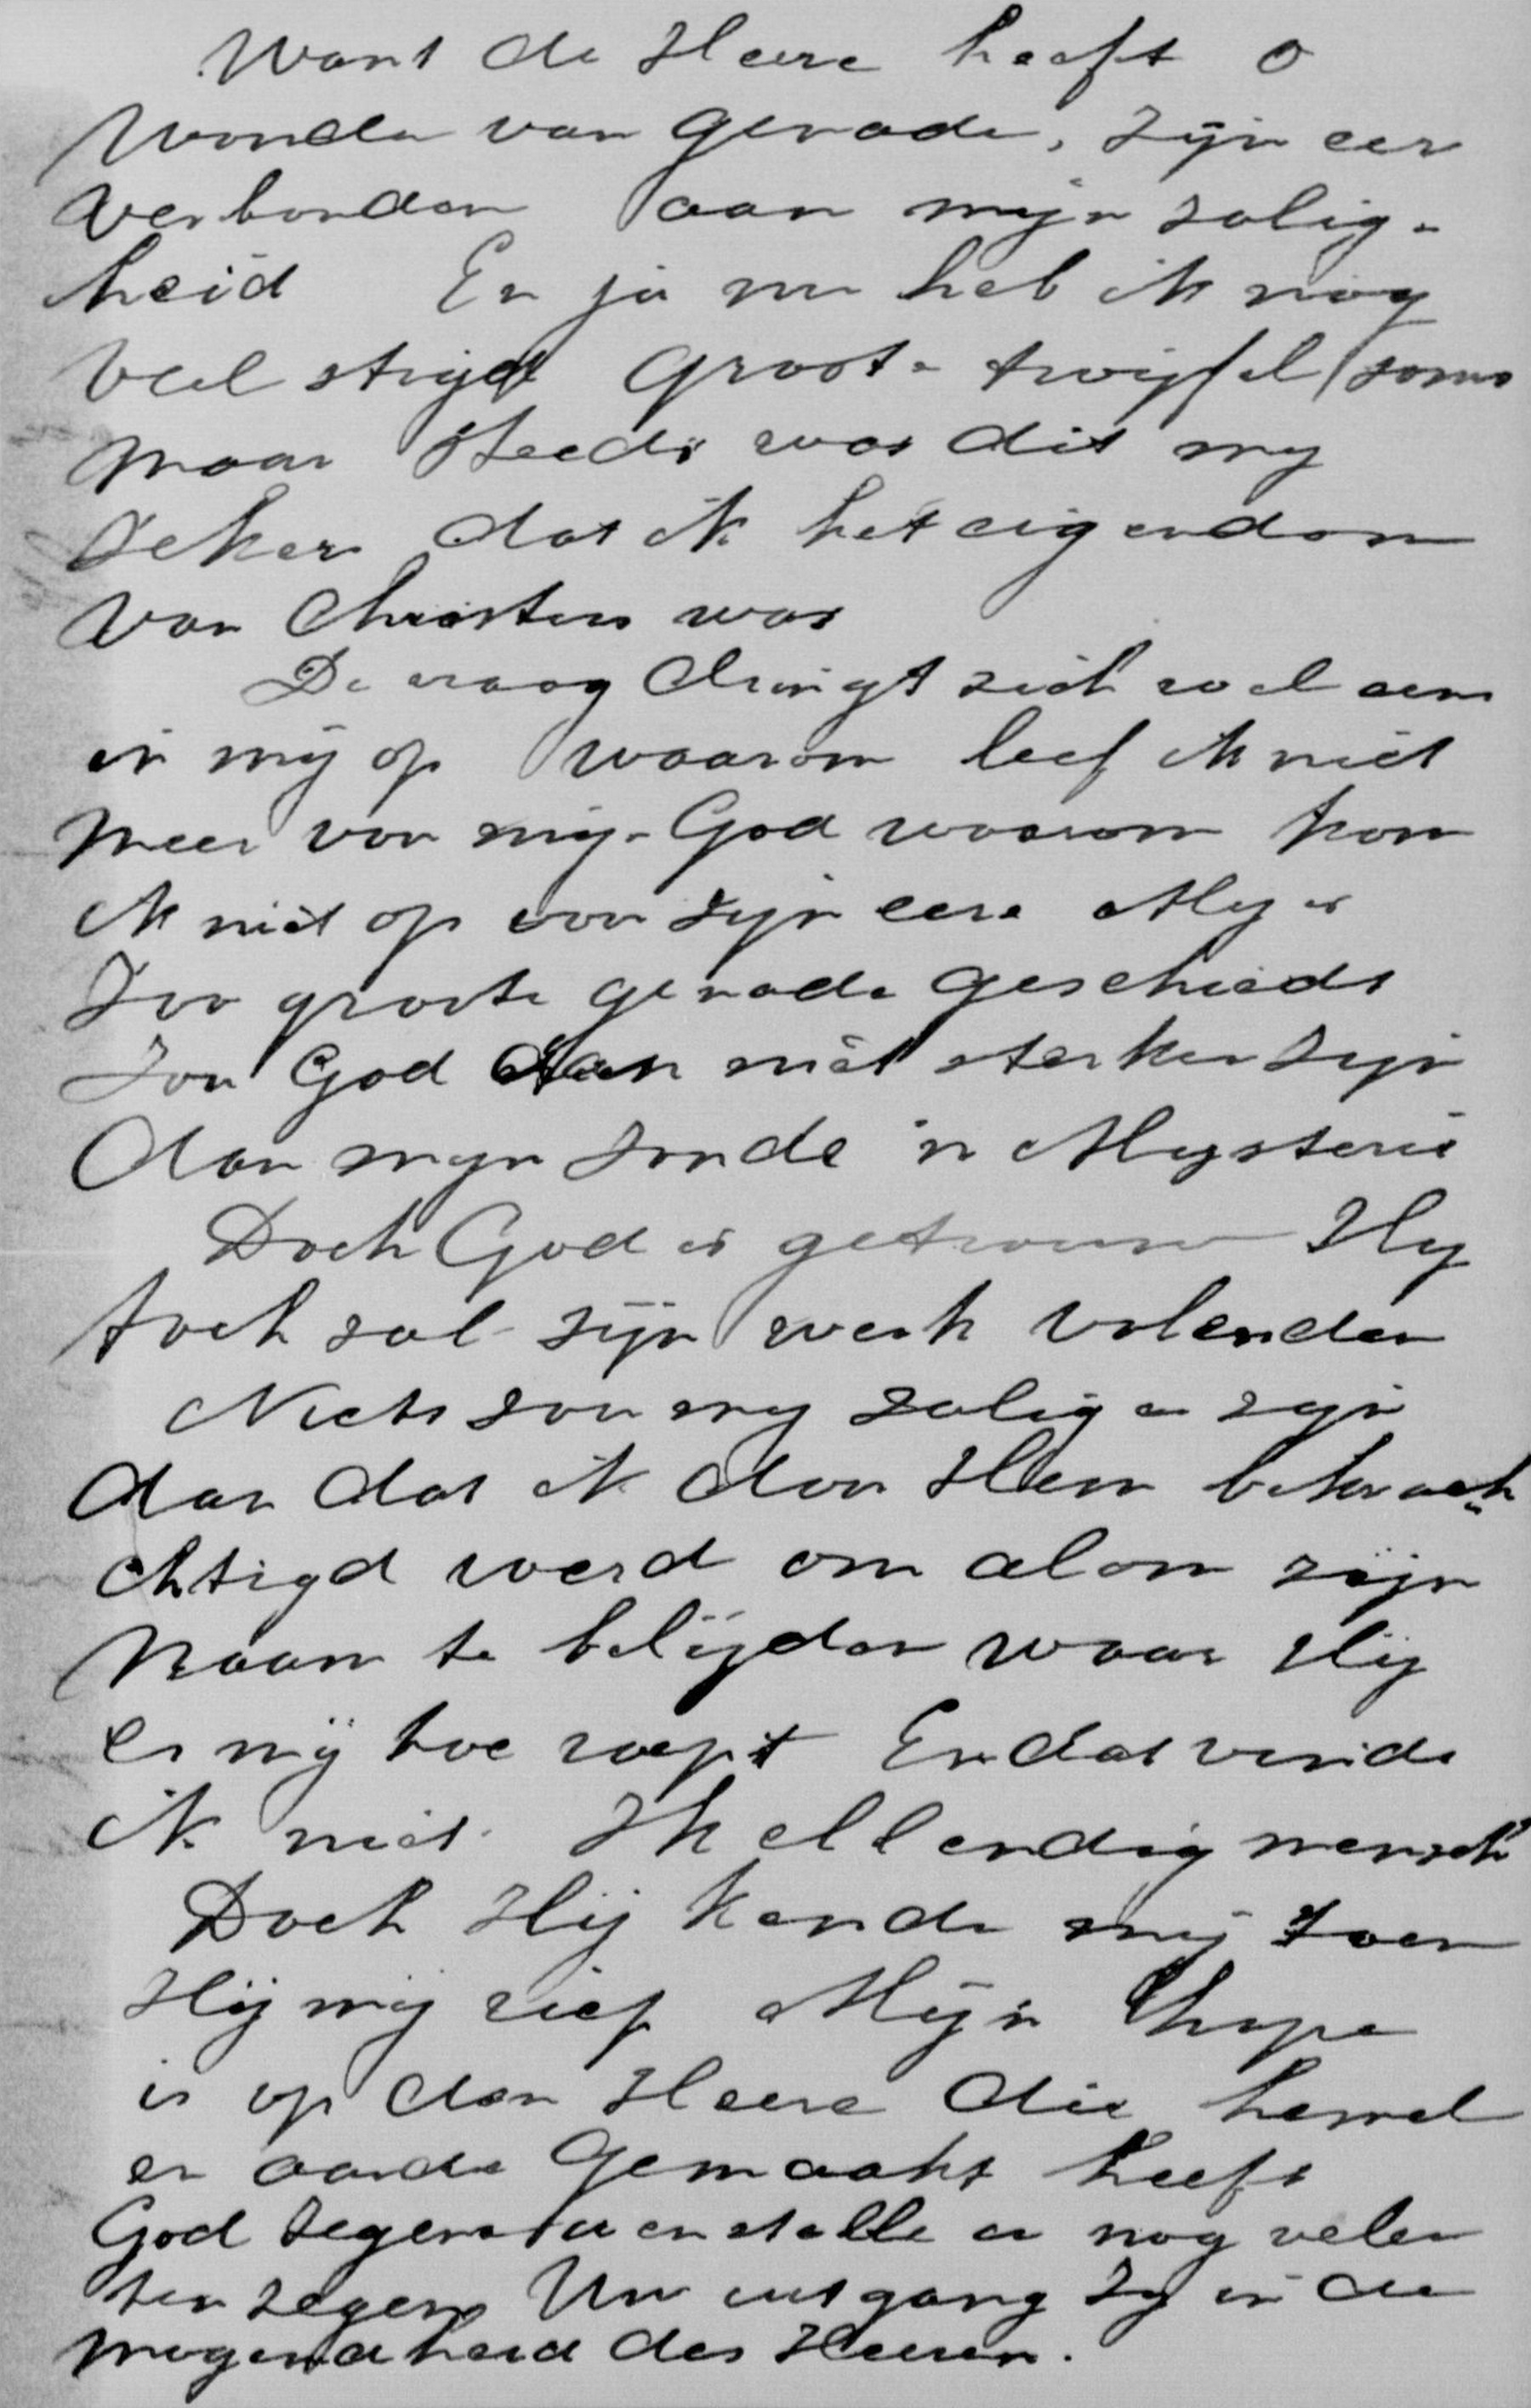 Want de Heere heeft o
Wonder van genade, zijn eer
verbonden aan mijn zalig-
heid En ja nu heb ik nog
veel strijd Groote twijfel soms
maar steeds was dit my
zeker dat ik het eigendom
van Christus was
De vraag dringt zich wel eens
in mij op waarom leef ik niet
meer voor mijn God waarom kom
ik niet op voor zijn eere My is
Zoo groote genade geschiedt
Zou God dan niet sterker zijn
dan mijn zonde 'n Mysterie
Doch God is getrouw Hy
toch zal zijn werk volenden
Niets zou my zaliger zijn
dan dat ik door Hem bekrach
chtigd werd om alom zijn
Naam te belijden waar Hij
er mij toe roept En dat vinde
ik niet. Ik ellendig mensch
Doch Hij kende mij toen
Hij mij riep Mijn hope
is op den Heere die hemel
en aarde Gemaakt heeft
God zegene u en stelle u nog velen
ten zegen Uw uitgang zy in de
mogendheid des Heeren.